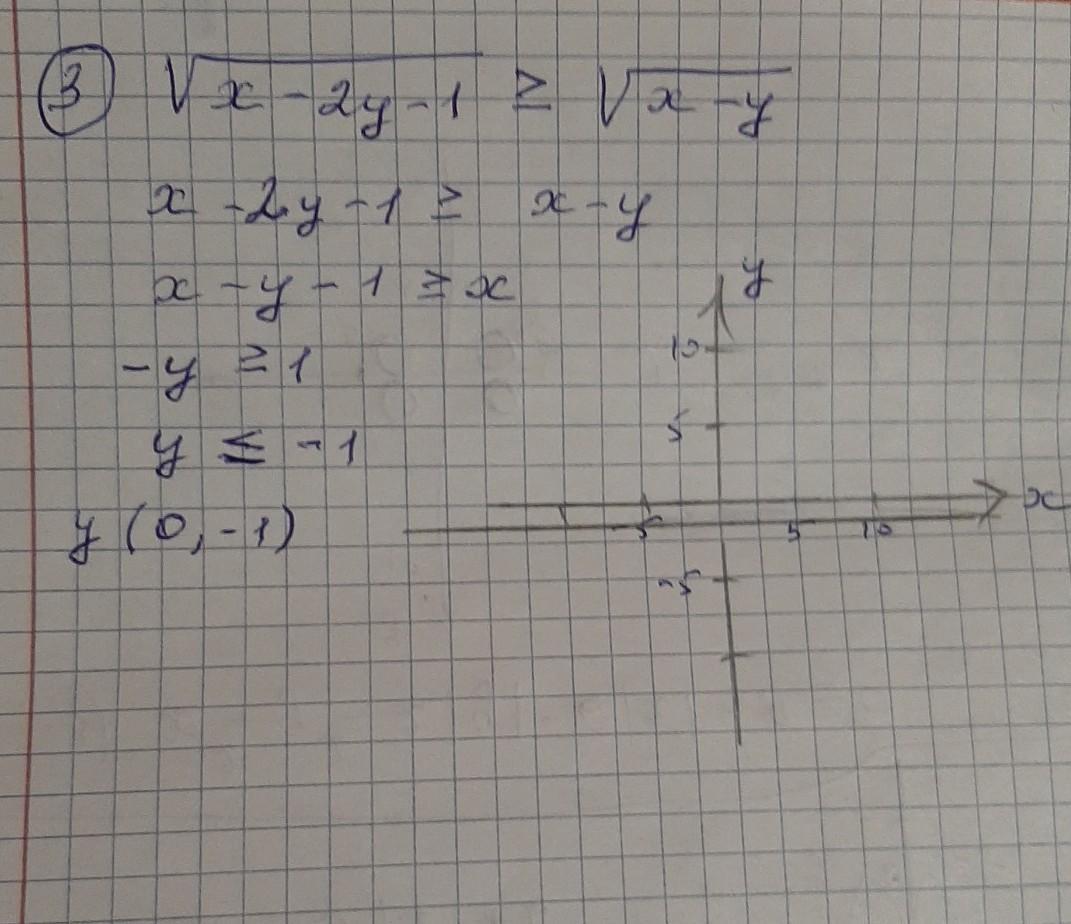 3 √x-2y-1 ≥ √x-y
x-2y-1 ≥ x-y
x-y-1 ≥ x
-y ≥ 1
y ≤ -1
y (0,-1)
y
10
5
x
5 5 10
-5